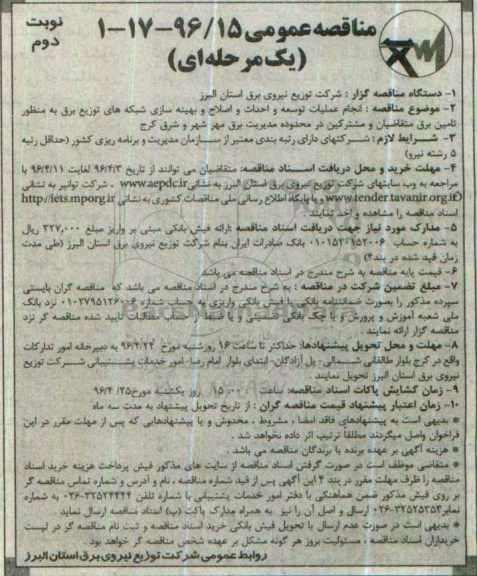 نوبت دوم
مناقصه عمومی ۹۶/۱۵-۱۷-۱
(یک مرحله‌ای)
۱- دستگاه مناقصه گزار : شرکت توزیع نیروی برق استان البرز
۲- موضوع مناقصه : انجام عملیات توسعه و احداث و اصلاح و بهینه سازی شبکه های توزیع برق به منظور
تامین برق متقاضیان و مشترکین در محدوده مدیریت برق مهر شهر و شرق کرج
۳- شرایط لازم : شرکتهای دارای رتبه بندی معتبر از سازمان مدیریت و برنامه ریزی کشور (حداقل رتبه
۵ رشته نیرو)
۴- مهلت خرید و محل دریافت اسناد مناقصه: متقاضیان می توانند از تاریخ ۹۶/۴/۳ لغایت ۹۶/۴/۱۱ با
مراجعه به وب سایتهای شرکت توزیع نیروی برق استان البرز به نشانی www.aepdc.ir ، شرکت توانیر به نشانی
www.tender.tavanir.org.ir و یا پایگاه اطلاع رسانی ملی مناقصات کشوری به نشانی http://iets.mporg.ir
اسناد مناقصه را مشاهده و اخذ نمایند .
۵- مدارک مورد نیاز جهت دریافت اسناد مناقصه :ارائه فیش بانکی مبنی بر واریز مبلغ ۳۲۷,۰۰۰ ریال
به شماره حساب ۰۱۰۱۵۲۰۱۵۲۰۰۶ بانک صادرات ایران بنام شرکت توزیع نیروی برق استان البرز (طی مدت
زمان قید شده در بند۴)
۶- قیمت پایه مناقصه به شرح مندرج در اسناد مناقصه می باشد
۷- مبلغ تضمین شرکت در مناقصه : به شرح مندرج در اسناد مناقصه می باشد که مناقصه گران بایستی
سپرده مذکور را بصورت ضمانتنامه بانکی یا فیش بانکی واریزی به حساب شماره ۰۱۰۲۷۹۵۱۲۶۰۰۶ نزد بانک
ملی شعبه آموزش و پرورش و یا چک بانکی تضمینی و یا ضبط از حساب مطالبات تایید شده مناقصه گر نزد
مناقصه گزار ارائه نمایند .
۸- مهلت و محل تحویل پیشنهادها: حداکثر تا ساعت ۱۶ روزشنبه مورخ ۹۶/۴/۲۴ به دبیرخانه امور تدارکات
واقع در کرج بلوار طالقانی شمالی - پل آزادگان- ابتدای بلوار امام رضا- امور خدمات پشتیبانی شرکت توزیع
نیروی برق استان البرز تحویل نمایند .
۹- زمان گشایش پاکات اسناد مناقصه: ساعت ۱۵:۰۰ روز یکشنبه مورخ ۹۶/۴/۲۵
۱۰- زمان اعتبار پیشنهاد قیمت مناقصه گران : از تاریخ تحویل پیشنهاد به مدت سه ماه
* بدیهی است به پیشنهادهای فاقد امضا ، مشروط ، مخدوش و یا پیشنهادهایی که پس از مهلت مقرر در این
فراخوان واصل میگردند مطلقا ترتیب اثر داده نخواهد شد .
* هزینه آگهی بر عهده برنده یا برندگان مناقصه می باشد .
* متقاضی موظف است در صورت گرفتن اسناد مناقصه از سایت های مذکور فیش پرداخت هزینه خرید اسناد
مناقصه را ظرف مهلت مقرر در بند ۴ این آگهی پس از قید شماره مناقصه ، نام و آدرس و شماره تماس مناقصه گر
بر روی فیش مذکور ضمن هماهنگی با دفتر امور خدمات پشتیبانی با شماره تلفن ۰۲۶-۳۲۵۲۴۴۴۴ به شماره
نمابر ۰۲۶-۳۲۵۲۵۲۵۳ ارسال و اصل آن را نیز به همراه مدارک پاکت (ب) اسناد مناقصه ارسال نماید
* بدیهی است در صورت عدم ارسال یا تحویل فیش بانکی خرید اسناد مناقصه و ثبت نام مناقصه گر در لیست
خریداران اسناد مناقصه ، مسئولیت بروز هر گونه مشکل بر عهده شخص مناقصه گر خواهد بود .
روابط عمومی شرکت توزیع نیروی برق استان البرز